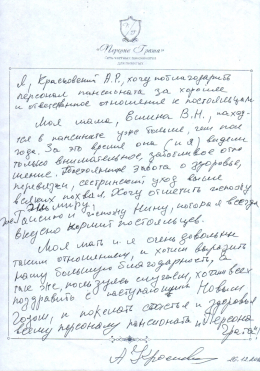 «Персона Грата»
Я, Красновский А.Р., хочу поблагодарить
персонал пансионата за хорошее
и ответственное отношение к постояльцам
Моя мама, В.Н., наход-
тся в пансионате уже больше, чем пол
года. За это время она (и я) видели
только внимательное, заботливое отно
шение. Постоянная забота о здоровье,
перевязки, сестринский уход выше
всяких похвал. Хочу отметить
и Нину, которая всегда
вкусно кормит постояльцев.
Моя мать и я очень довольны
таким отношением, и хотим выразить
нашу большую благодарность, а
так же, пользуясь случаем, хотим всех
поздравить с наступающим Новым
Годом, и пожелать счастья и здоровья
всему персоналу пансионата „Персона
Грата"!